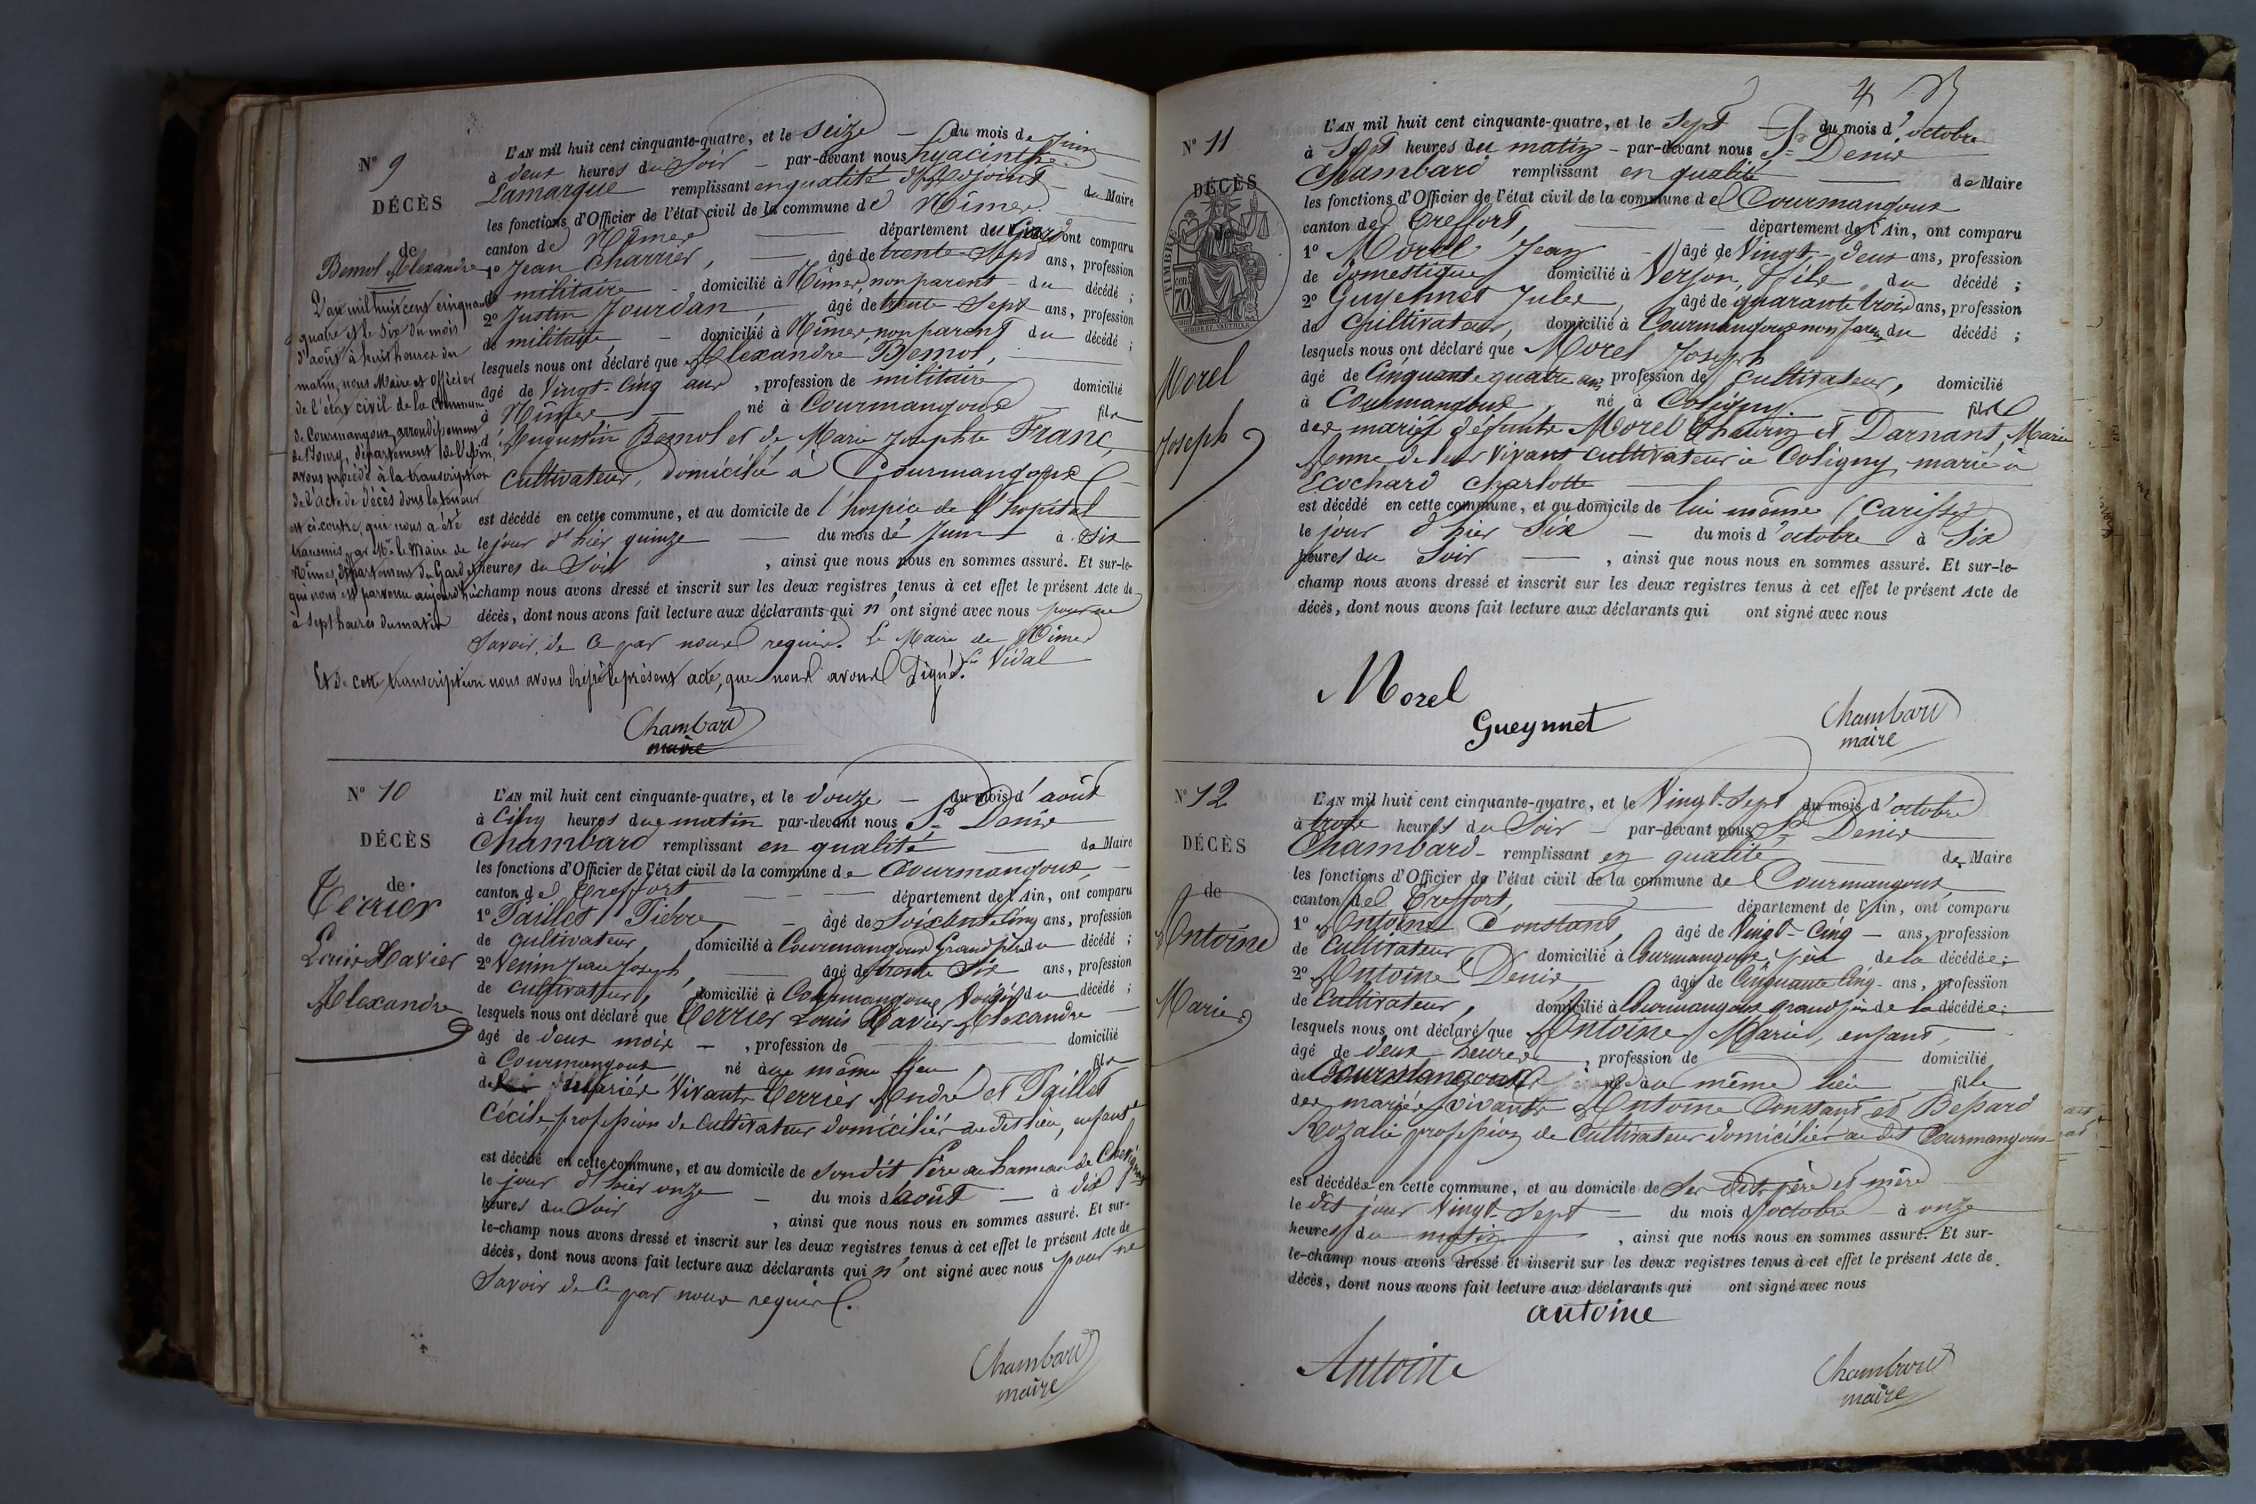 N° 9
DÉCÈS
de
Bemol Alexandre
L'an mil huit cent cinquante
quatre et le six du mois
d'août à huit heures du
matin, nous Maire et Officier
de l'état civil de la Commune
de Courmangoux, arrondissement
de Bourg, département de l'Ain,
avons procédé à la transcription
de l'acte de décès dont la teneur
est ci-contre, qui nous a été
transmis par Mr le Maire de
Nîmes, département du Gard et
qui nous est parvenu aujourd'hui
à sept heures du matin
L'AN mil huit cent cinquante-quatre, et le seize du mois de Juin
à deux heures du Soir par-devant nous hyacinthe
Lamarque remplissant en qualité d'adjoint du Maire
les fonctions d'Officier de l'état civil de la commune de Nîmes
canton de Nîmes département du Gard ont comparu
1° Jean Charrier, âgé de trente-sept ans, profession
de militaire domicilié à Nîmes, non parent du décédé ;
2° Justin Jourdan, âgé de trente-sept ans, profession
de militaire, domicilié à Nîmes, non parent du décédé ;
lesquels nous ont déclaré que Alexandre Bemol,
âgé de Vingt-Cinq ans, profession de militaire domicilié
à Nîmes né à Courmangoux fils
d'Augustin Bemol et de Marie Josephte Franc,
Cultivateur, domicilié à Courmangoux
est décédé en cette commune, et au domicile de l'hospice de l'hopital
le jour d'hier quinze du mois de Juin à Six
heures du Soir, ainsi que nous nous en sommes assuré. Et sur-le-
champ nous avons dressé et inscrit sur les deux registres tenus à cet effet le présent Acte de
décès, dont nous avons fait lecture aux déclarants qui n'ont signé avec nous pour ne
Savoir, de ce par nous requis. Le Maire de Nîmes
Vidal
Et de cette transcription nous avons dressé le présent acte, que nous avons Signé.
Chambard
maire
N° 10
DÉCÈS
de
Terrier
Louis Xavier
Alexandre
L'AN mil huit cent cinquante-quatre, et le douze du mois d'août
à Cinq heures du matin par-devant nous St Denis
Chambard remplissant en qualité de Maire
les fonctions d'Officier de l'état civil de la commune de Courmangoux,
canton de Treffort département de l'Ain, ont comparu
1° Paillet Pierre, âgé de Soixante Cinq ans, profession
de cultivateur, domicilié à Courmangoux Grand père du décédé ;
2° Venin Jean Joseph, âgé de trente Six ans, profession
de cultivateur, domicilié à Courmangoux Voisin du décédé ;
lesquels nous ont déclaré que Terrier Louis Xavier Alexandre
âgé de deux mois, profession de domicilié
à Courmangoux né au même lieu, fils
de mariés Vivants Terrier André et Paillet
Cécile, profession de Cultivateur domiciliés au dit lieu, enfant
est décédé en cette commune, et au domicile de Sondit Père au hameau de Chevignat
le jour d'hier onze du mois d'août à dix
heures du Soir, ainsi que nous nous en sommes assuré. Et sur-
le-champ nous avons dressé et inscrit sur les deux registres tenus à cet effet le présent Acte de
décès, dont nous avons fait lecture aux déclarants qui n'ont signé avec nous pour ne
Savoir de ce par nous requis.
Chambard
maire
4
N° 11
DÉCÈS
de
TIMBRE
70
Morel
Joseph
L'AN mil huit cent cinquante-quatre, et le Sept du mois d'octobre
à Sept heures du matin par-devant nous St Denis
Chambard remplissant en qualité de Maire
les fonctions d'Officier de l'état civil de la commune de Courmangoux
canton de Treffort, département de l'Ain, ont comparu
1° Morel Jean âgé de Vingt-deux ans, profession
de domestique domicilié à Verjon, fils du décédé ;
2° Guyennet Jules, âgé de quarante trois ans, profession
de Cultivateur, domicilié à Courmangoux non parent du décédé ;
lesquels nous ont déclaré que Morel Joseph
âgé de Cinquante quatre ans, profession de Cultivateur, domicilié
à Courmangoux, né à Coligny. fils
des mariés défunts Morel Thaurin et Darnant, Marie
Anne de leur vivant cultivateur à Coligny marié à
Ecochard Charlotte
est décédé en cette commune, et au domicile de lui même (Carisse)
le jour d'hier Six du mois d'octobre à Six
heures du Soir, ainsi que nous nous en sommes assuré. Et sur-le-
champ nous avons dressé et inscrit sur les deux registres tenus à cet effet le présent Acte de
décès, dont nous avons fait lecture aux déclarants qui ont signé avec nous
Morel
Gueynnet
Chambard
maire
N° 12
DÉCÈS
de
Antoine
Marie
L'AN mil huit cent cinquante-quatre, et le Vingt-Sept du mois d'octobre
à trois heures du Soir par-devant nous St Denis
Chambard remplissant en qualité de Maire
les fonctions d'Officier de l'état civil de la commune de Courmangoux,
canton de Treffort, département de l'Ain, ont comparu
1° Antoine Constant, âgé de Vingt-Cinq ans, profession
de Cultivateur domicilié à Courmangoux, père de la décédée ;
2° Antoine Denis, âgé de Cinquante Cinq ans, profession
de Cultivateur, domicilié à Courmangoux grand père de la décédée ;
lesquels nous ont déclaré que Antoine Marie, enfant,
âgé de deux heures, profession de domicilié
à Courmangoux née au même lieu fille
des mariés vivants Antoine Constant et Bessard
Rozalie profession de Cultivateur domiciliés au dit Courmangoux
est décédée en cette commune, et au domicile de Ses dits père et mère
le dit jour Vingt Sept du mois d'octobre à onze
heures du matin, ainsi que nous nous en sommes assuré. Et sur-
le-champ nous avons dressé et inscrit sur les deux registres tenus à cet effet le présent Acte de
décès, dont nous avons fait lecture aux déclarants qui ont signé avec nous
antoine
Antoine
Chambard
maire